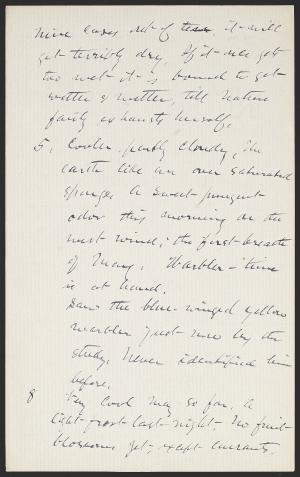 nine cases out of ten, it will
get terribly dry. If it once gets
too wet it is bound to get
wetter & wetter, till Nature
fairly exhausts herself.
5, Cooler, partly cloudy, the
earth like an over saturated
sponge. A sweet pungent
odor this morning on the
west wind; the first breath
of May. Warbler-time
is at hand.
Saw the blue-winged yellow
warbler just now by the
study. Never identified him
before.
8 Very cool May so far. A
light frost last night. No fruit
blossoms yet, except currants.